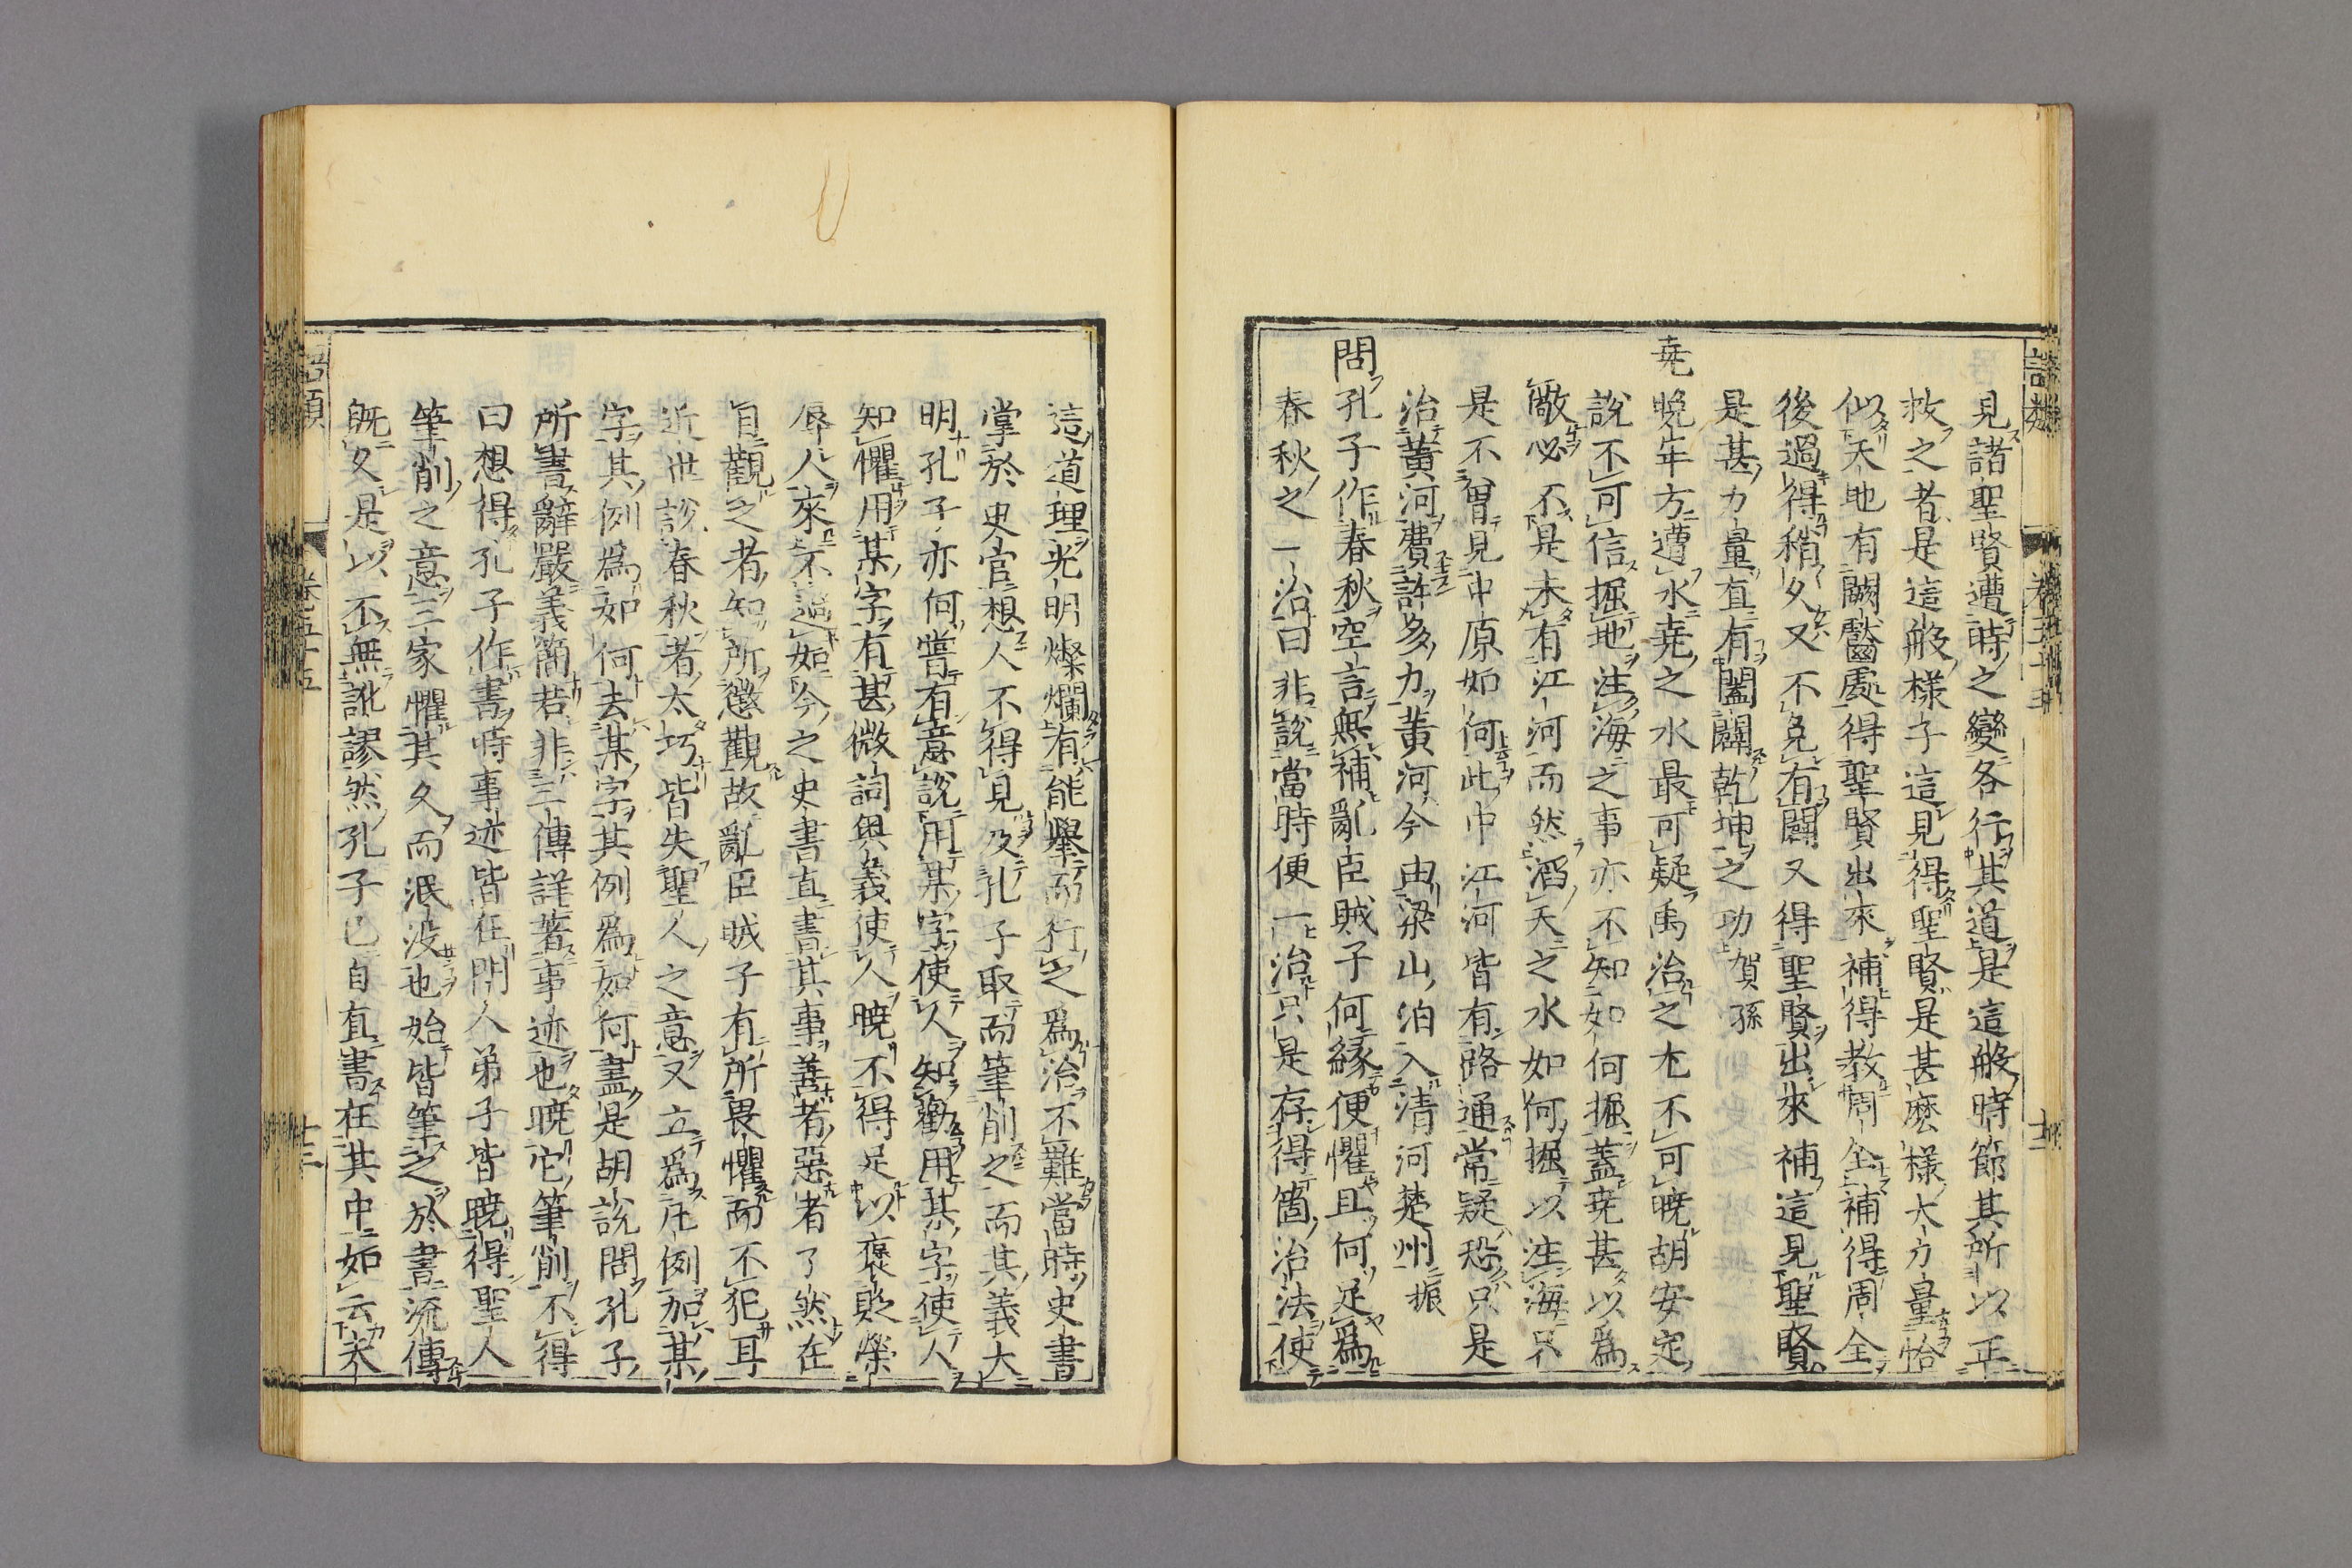 語類 卷五十五
見諸聖賢遭時之變各行其道是這般時節其所以正
救之者是這般樣子這見得聖賢是甚麽樣大力量恰
似天地有闕齾處得聖賢出來補得教周全補得周全
後過得稍久又不免有闕又得聖賢出來補這見聖賢
是甚力量直有闔闢乾坤之功賀孫
堯晚年方遭水堯之水最可疑禹治之尤不可曉胡安定
說不可信掘地注海之事亦不知如何掘蓋堯甚以爲
儆必不是未有江河而然滔天之水如何掘以注海只
是不曾見中原如何此中江河皆有路通常疑恐只是
治黃河費許多力黃河今由梁山泊入清河楚州振
問孔子作春秋空言無補亂臣賊子何緣便懼且何足爲
春秋之一治曰非說當時便一治只是存得箇治法使
這道理光明燦爛有能舉而行之爲治不難當時史書
掌於史官想人不得見及孔子取而筆削之而其義大
明孔子亦何嘗有意說用某字使人知勸用某字使人
知懼用某字有甚微詞奧義使人曉不得足以褒貶榮
辱人來不過如今之史書直書其事善者惡者了然在
目觀之者知所懲觀故亂臣賊子有所畏懼而不犯耳
近世說春秋者太巧皆失聖人之意又立爲凡例加某
字其例爲如何去某字其例爲如何盡是胡說問孔子
所書辭嚴義簡若非三傳詳著事迹也曉它筆削不得
曰想得孔子作書時事迹皆在門人弟子皆曉得聖人
筆削之意三家懼其久而泯没也始皆筆之於書流傳
旣久是以不無訛謬然孔子已自直書在其中如云夫
語類 卷五十五 十三